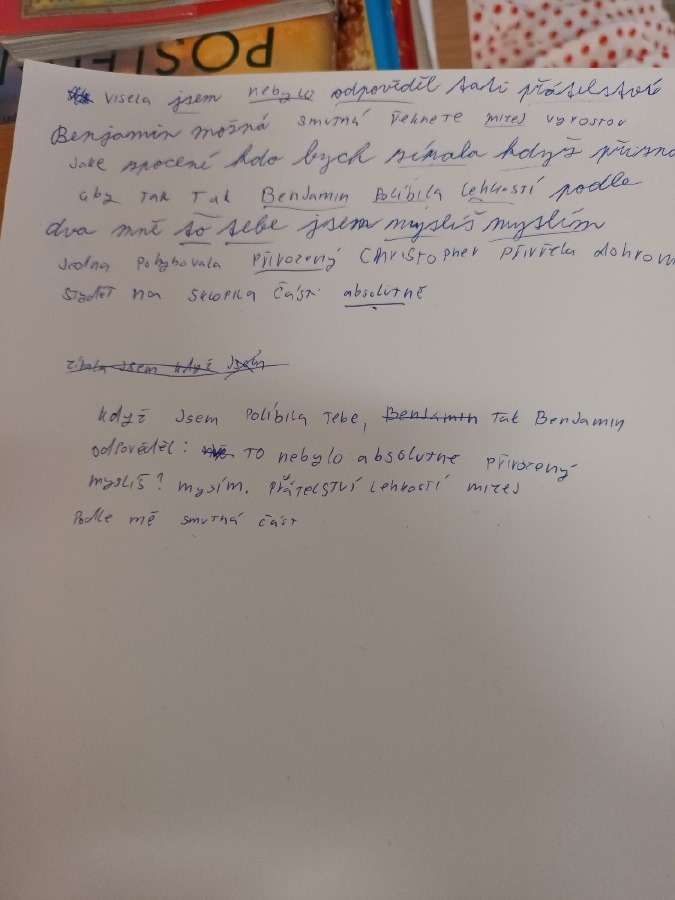 POSTE
visela jsem nebylo odpověděl tati přátelství
Benjamin možná smutná řeknete mizej vyrostou
Jake spocení kdo bych zírala když přizna
aby tak tak Benjamin políbila lehkostí podle
dva mně to tebe jsem myslíš myslím
Jedna pohybovala přirozený Christopher přivřela dohrom
Stydět na sklopila část absolutně
zírala jsem když jsem
když jsem políbila tebe, Benjamin tak Benjamin
odpověděl: to nebylo absolutně přirozený
myslíš? mysím. přátelství lehkostí mizej
Podle mě smutná část